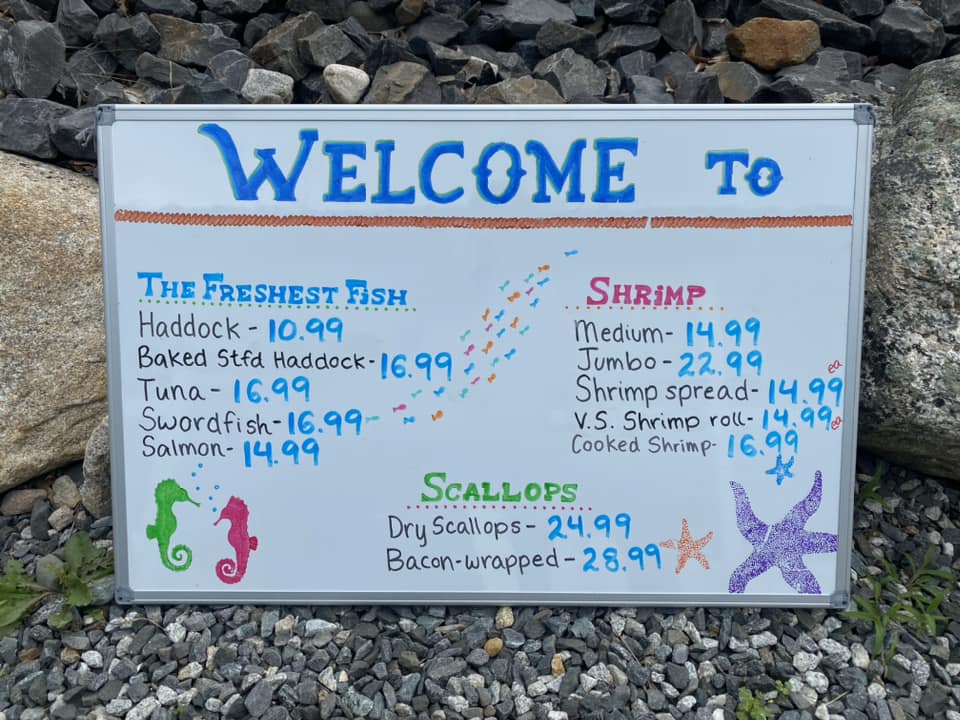 WELCOME TO
THE FRESHEST FISH
Haddock - 10.99
Baked Stfd Haddock - 16.99
Tuna - 16.99
Swordfish - 16.99
Salmon - 14.99
SHRiMP
Medium - 14.99
Jumbo - 22.99
Shrimp spread - 14.99 ea
V.S. Shrimp roll - 14.99 ea
Cooked Shrimp - 16.99
SCALLOPS
Dry Scallops - 24.99
Bacon-wrapped - 28.99